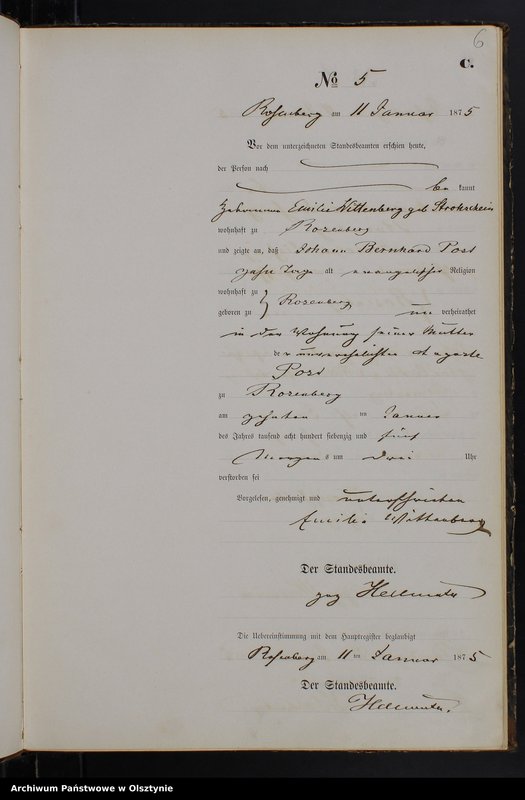 6
C.
No 5
Rosenberg am 11 Januar 1875
Vor dem unterzeichneten Standesbeamten erschien heute,
der Person nach
be kannt
Hebamme Emilie Wittenberg geb Strohschein
wohnhaft zu Rosenberg
und zeigte an, daß Johann Bernhard Post
zehn Tage alt evangelischer Religion
wohnhaft zu
geboren zu } Rosenberg un verheirathet
in der Wohnung seiner Mutter
der unverehelichten
Post
zu Rosenberg
am zehnten ten Januar
des Jahres tausend acht hundert siebenzig und fünf
Morgens um drei Uhr
verstorben sei
Vorgelesen, genehmigt und unterschrieben
Emilie Wittenberg
Der Standesbeamte.
gez
Die Uebereinstimmung mit dem Hauptregister beglaubigt
Rosenberg am 11 ten Januar 1875
Der Standesbeamte.
Archiwum Państwowe w Olsztynie